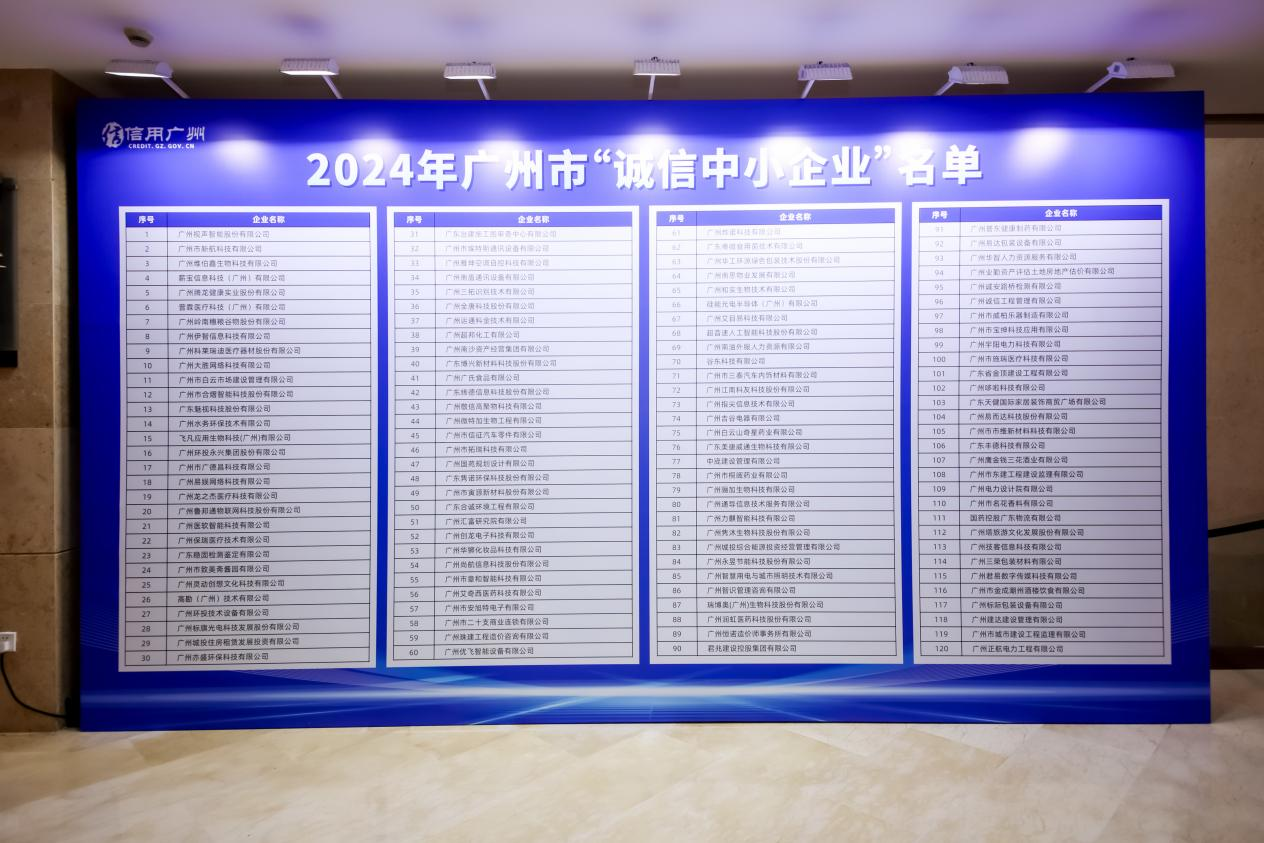 信用广州
CREDIT.GZ.GOV.CN
2024年广州市“诚信中小企业”名单
序号 企业名称
1 广州视声智能股份有限公司
2 广州市新航科技有限公司
3 广州维伯鑫生物科技有限公司
4 薪宝信息科技（广州）有限公司
5 广州腾龙健康实业股份有限公司
6 普霖医疗科技（广州）有限公司
7 广州岭南穗粮谷物股份有限公司
8 广州伊智信息科技有限公司
9 广州科莱瑞迪医疗器材股份有限公司
10 广州大胜网络科技有限公司
11 广州市白云市场建设管理有限公司
12 广州市合熠智能科技股份有限公司
13 广东魅视科技股份有限公司
14 广州水务环保技术有限公司
15 飞凡应用生物科技(广州)有限公司
16 广州环投永兴集团股份有限公司
17 广州市广德昌科技有限公司
18 广州易娱网络科技有限公司
19 广州龙之杰医疗科技有限公司
20 广州鲁邦通物联网科技股份有限公司
21 广州医软智能科技有限公司
22 广州保瑞医疗技术有限公司
23 广东稳固检测鉴定有限公司
24 广州市致美斋酱园有限公司
25 广州灵动创想文化科技有限公司
26 高勘（广州）技术有限公司
27 广州环投技术设备有限公司
28 广州标旗光电科技发展股份有限公司
29 广州城投住房租赁发展投资有限公司
30 广州亦盛环保科技有限公司
序号 企业名称
31 广东治建施工图审查中心有限公司
32 广州市埃特斯通讯设备有限公司
33 广州雅坤空调自控科技有限公司
34 广州南盾通讯设备有限公司
35 广州三拓识别技术有限公司
36 广州全康科技股份有限公司
37 广州运通科金技术有限公司
38 广州超邦化工有限公司
39 广州南沙资产经营集团有限公司
40 广东博兴新材料科技股份有限公司
41 广州广氏食品有限公司
42 广东纬德信息科技股份有限公司
43 广州敬信高聚物科技有限公司
44 广州微特加生物工程有限公司
45 广州市信征汽车零件有限公司
46 广州市拓瑞科技有限公司
47 广州国苑规划设计有限公司
48 广东隽诺环保科技股份有限公司
49 广州市寅源新材料股份有限公司
50 广东合诚环境工程有限公司
51 广州汇富研究院有限公司
52 广州创龙电子科技有限公司
53 广州华狮化妆品科技有限公司
54 广州尚航信息科技股份有限公司
55 广州市章和智能科技有限公司
56 广州艾奇西医药科技有限公司
57 广州市安旭特电子有限公司
58 广州市二十支商业连锁有限公司
59 广州珠建工程造价咨询有限公司
60 广州优飞智能设备有限公司
序号 企业名称
61 广州烨诺科技有限公司
62 广东粤微食用菌技术有限公司
63 广州华工环源绿色包装技术股份有限公司
64 广州南思物业发展有限公司
65 广州和实生物技术有限公司
66 硅能光电半导体（广州）有限公司
67 广州文目易科技有限公司
68 超音速人工智能科技股份有限公司
69 广州南油外服人力资源有限公司
70 谷东科技有限公司
71 广州市三泰汽车内饰材料有限公司
72 广州江南科友科技股份有限公司
73 广州指尖信息技术有限公司
74 广州吉谷电器有限公司
75 广州白云山奇星药业有限公司
76 广东美捷威通生物科技有限公司
77 中庞建设管理有限公司
78 广州市桐晖药业有限公司
79 广州施加生物科技有限公司
80 广州通导信息技术服务有限公司
81 广州力麒智能科技有限公司
82 广州隽沐生物科技股份有限公司
83 广州城投综合能源投资经营管理有限公司
84 广州永昱节能科技股份有限公司
85 广州智慧用电与城市照明技术有限公司
86 广州智识管理咨询有限公司
87 瑞博奥(广州)生物科技股份有限公司
88 广州润虹医药科技股份有限公司
89 广州恒诺造价师事务所有限公司
90 君兆建设控股集团有限公司
序号 企业名称
91 广州普东健康制药有限公司
92 广州易达包装设备有限公司
93 广州华智人力资源服务有限公司
94 广州业勤资产评估土地房地产估价有限公司
95 广州诚安路桥检测有限公司
96 广州诚信工程管理有限公司
97 广州市威柏乐器制造有限公司
98 广州市宝绅科技应用有限公司
99 广州宇阳电力科技有限公司
100 广州市施瑞医疗科技有限公司
101 广东省金顶建设工程有限公司
102 广州哆啦科技有限公司
103 广东天健国际家居装饰商贸广场有限公司
104 广州易而达科技股份有限公司
105 广州市市维新材料科技有限公司
106 广东丰德科技有限公司
107 广州鹰金钱三花酒业有限公司
108 广州市东建工程建设监理有限公司
109 广州电力设计院有限公司
110 广州市名花香料有限公司
111 国药控股广东物流有限公司
112 广州塔旅游文化发展股份有限公司
113 广州技客信息科技有限公司
114 广州三荣包装材料有限公司
115 广州君易数字传媒科技有限公司
116 广州市金成潮州酒楼饮食有限公司
117 广州标际包装设备有限公司
118 广州建达建设管理有限公司
119 广州市城市建设工程监理有限公司
120 广州正航电力工程有限公司